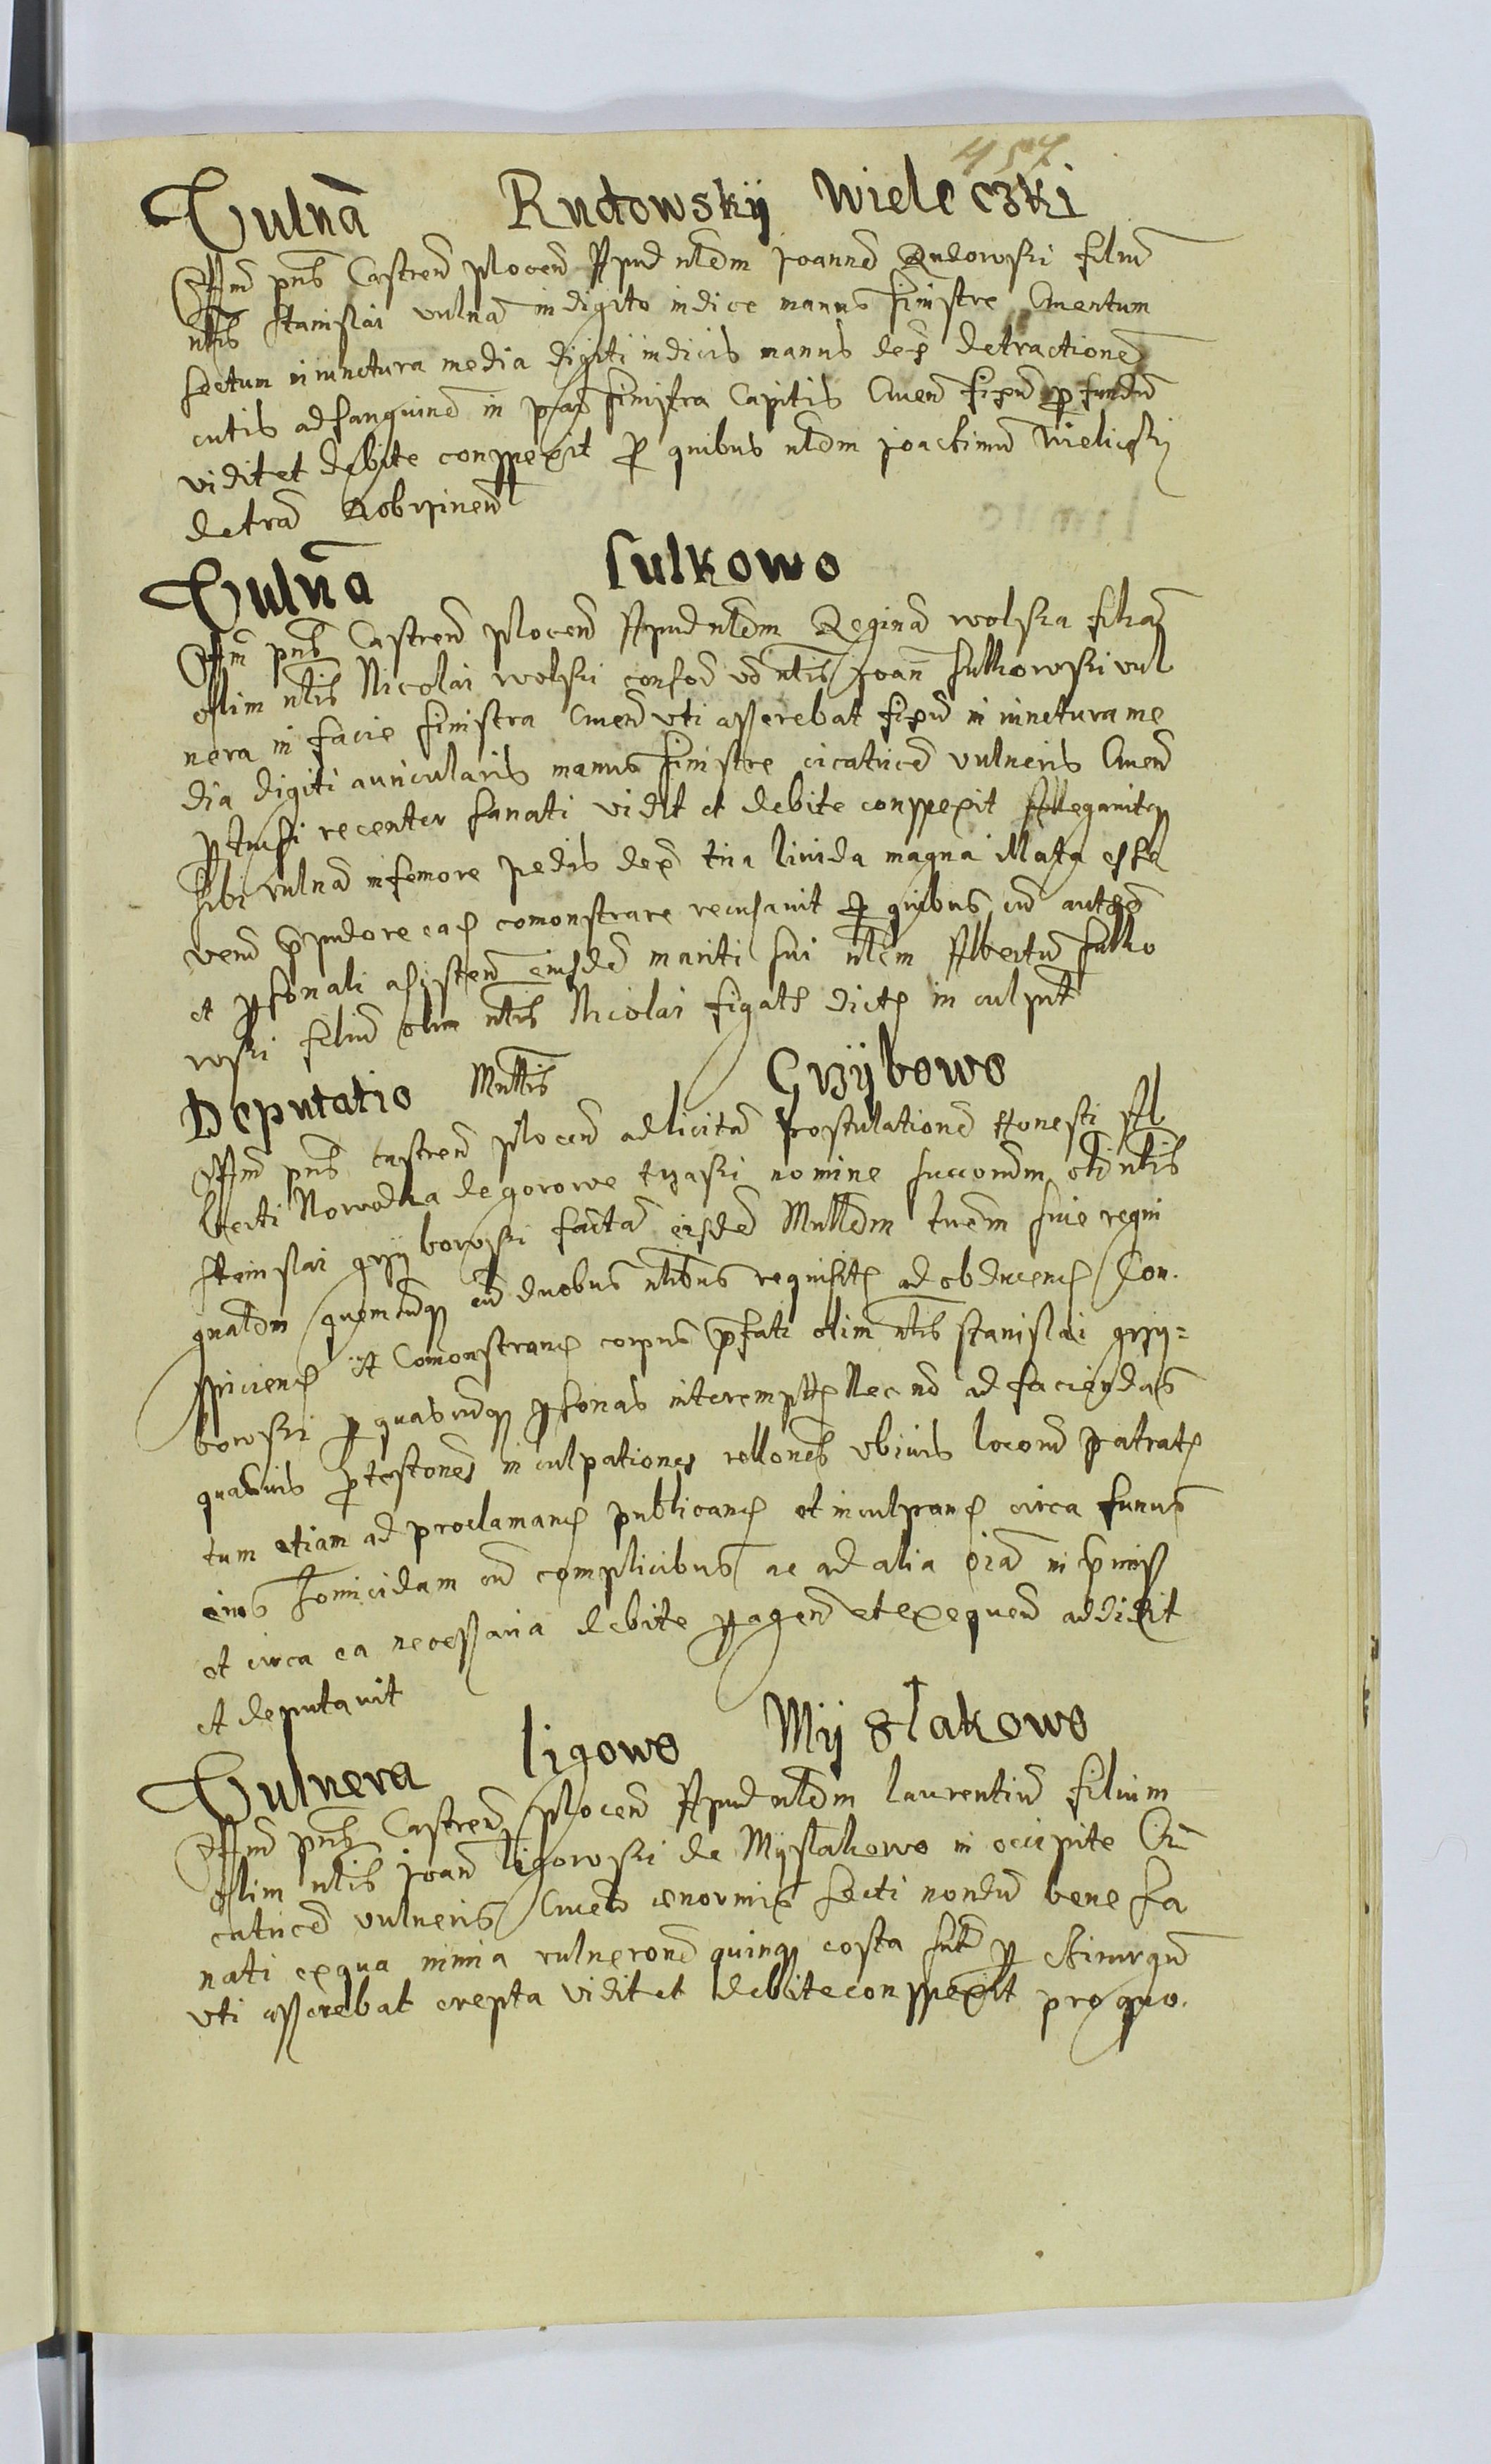 457
Vulnã Rudowskÿ Wieleczki
Offm pns Castren Plocen Apud nldm Joanne Rudowski filiu
nlis Stanislai vulna in digito indice manus sinistre Cruentum
sectum in iunctura media digiti indicis manus dex detractione
cutis ad sanguine in parte sinistra Capitis Cruen fixu profundu
vidit et debite conspexit pro quibus nldm Joachimu Wieliczki
de tra Dobrzinen
Vulnã Sulkowo
Offm pns Castren Plocen Apud nldm Regina Wolska filia
olim nlis Nicolai Wolski consor vo nlis Joan Sulkowski vul
nera in facie sinistra Cruen uti asserebat fixu in iunctura me
dia digiti auricularis manus sinistre cicatrice vulneris Cruen
recenter sanati vidit et debite conspexit Allegavitq
sibi vulna in femore pedis dex tria livida magna illata esse
veru p pudore eas comonstrare recusavit pro quibus cu
et psonali assisten eiusde mariti sui nldm Albertu Sulko
wski filiu olim nlis Nicolai dict in culpat
Deputatio Mnllis Grzÿbowo
Offm pns Castren Plocen ad licita postulatione Honesti Al
berti de gorowo nomine olim nlis
Stanislai grzÿbowski facta eisde Mnlldm sive regni
gnaldm quemcunq cu duobus nlibus requisit ad obducend Con
spiciend et Comonstrand corpus pfati olim nlis Stanislai grzy=
bowski p quascunq psonas interempt Nec no ad faciendas
quasvis ptestones inculpationes rellones ubivis locoru patrat
tum etiam ad proclamand publicand et inculpand circa funus
eius homicidam cu complicibus ac ad alia oia in pmiss
et circa ea necessaria debite pagen et exequen addidit
et deputavit
Vulnera Ligowo Mÿslakowo
Offm pns Castren Plocen Apud nldm Laurentiu filium
olim nlis Joan Ligowski de Mÿslakowo in occipite Ci
catrice vulneris Cruen enormis secti nondu bene sa
nati ex qua nimia vulnerone quinq costa sut p Chirurgu
uti asserebat erepta vidit et debite conspexit pro quo.